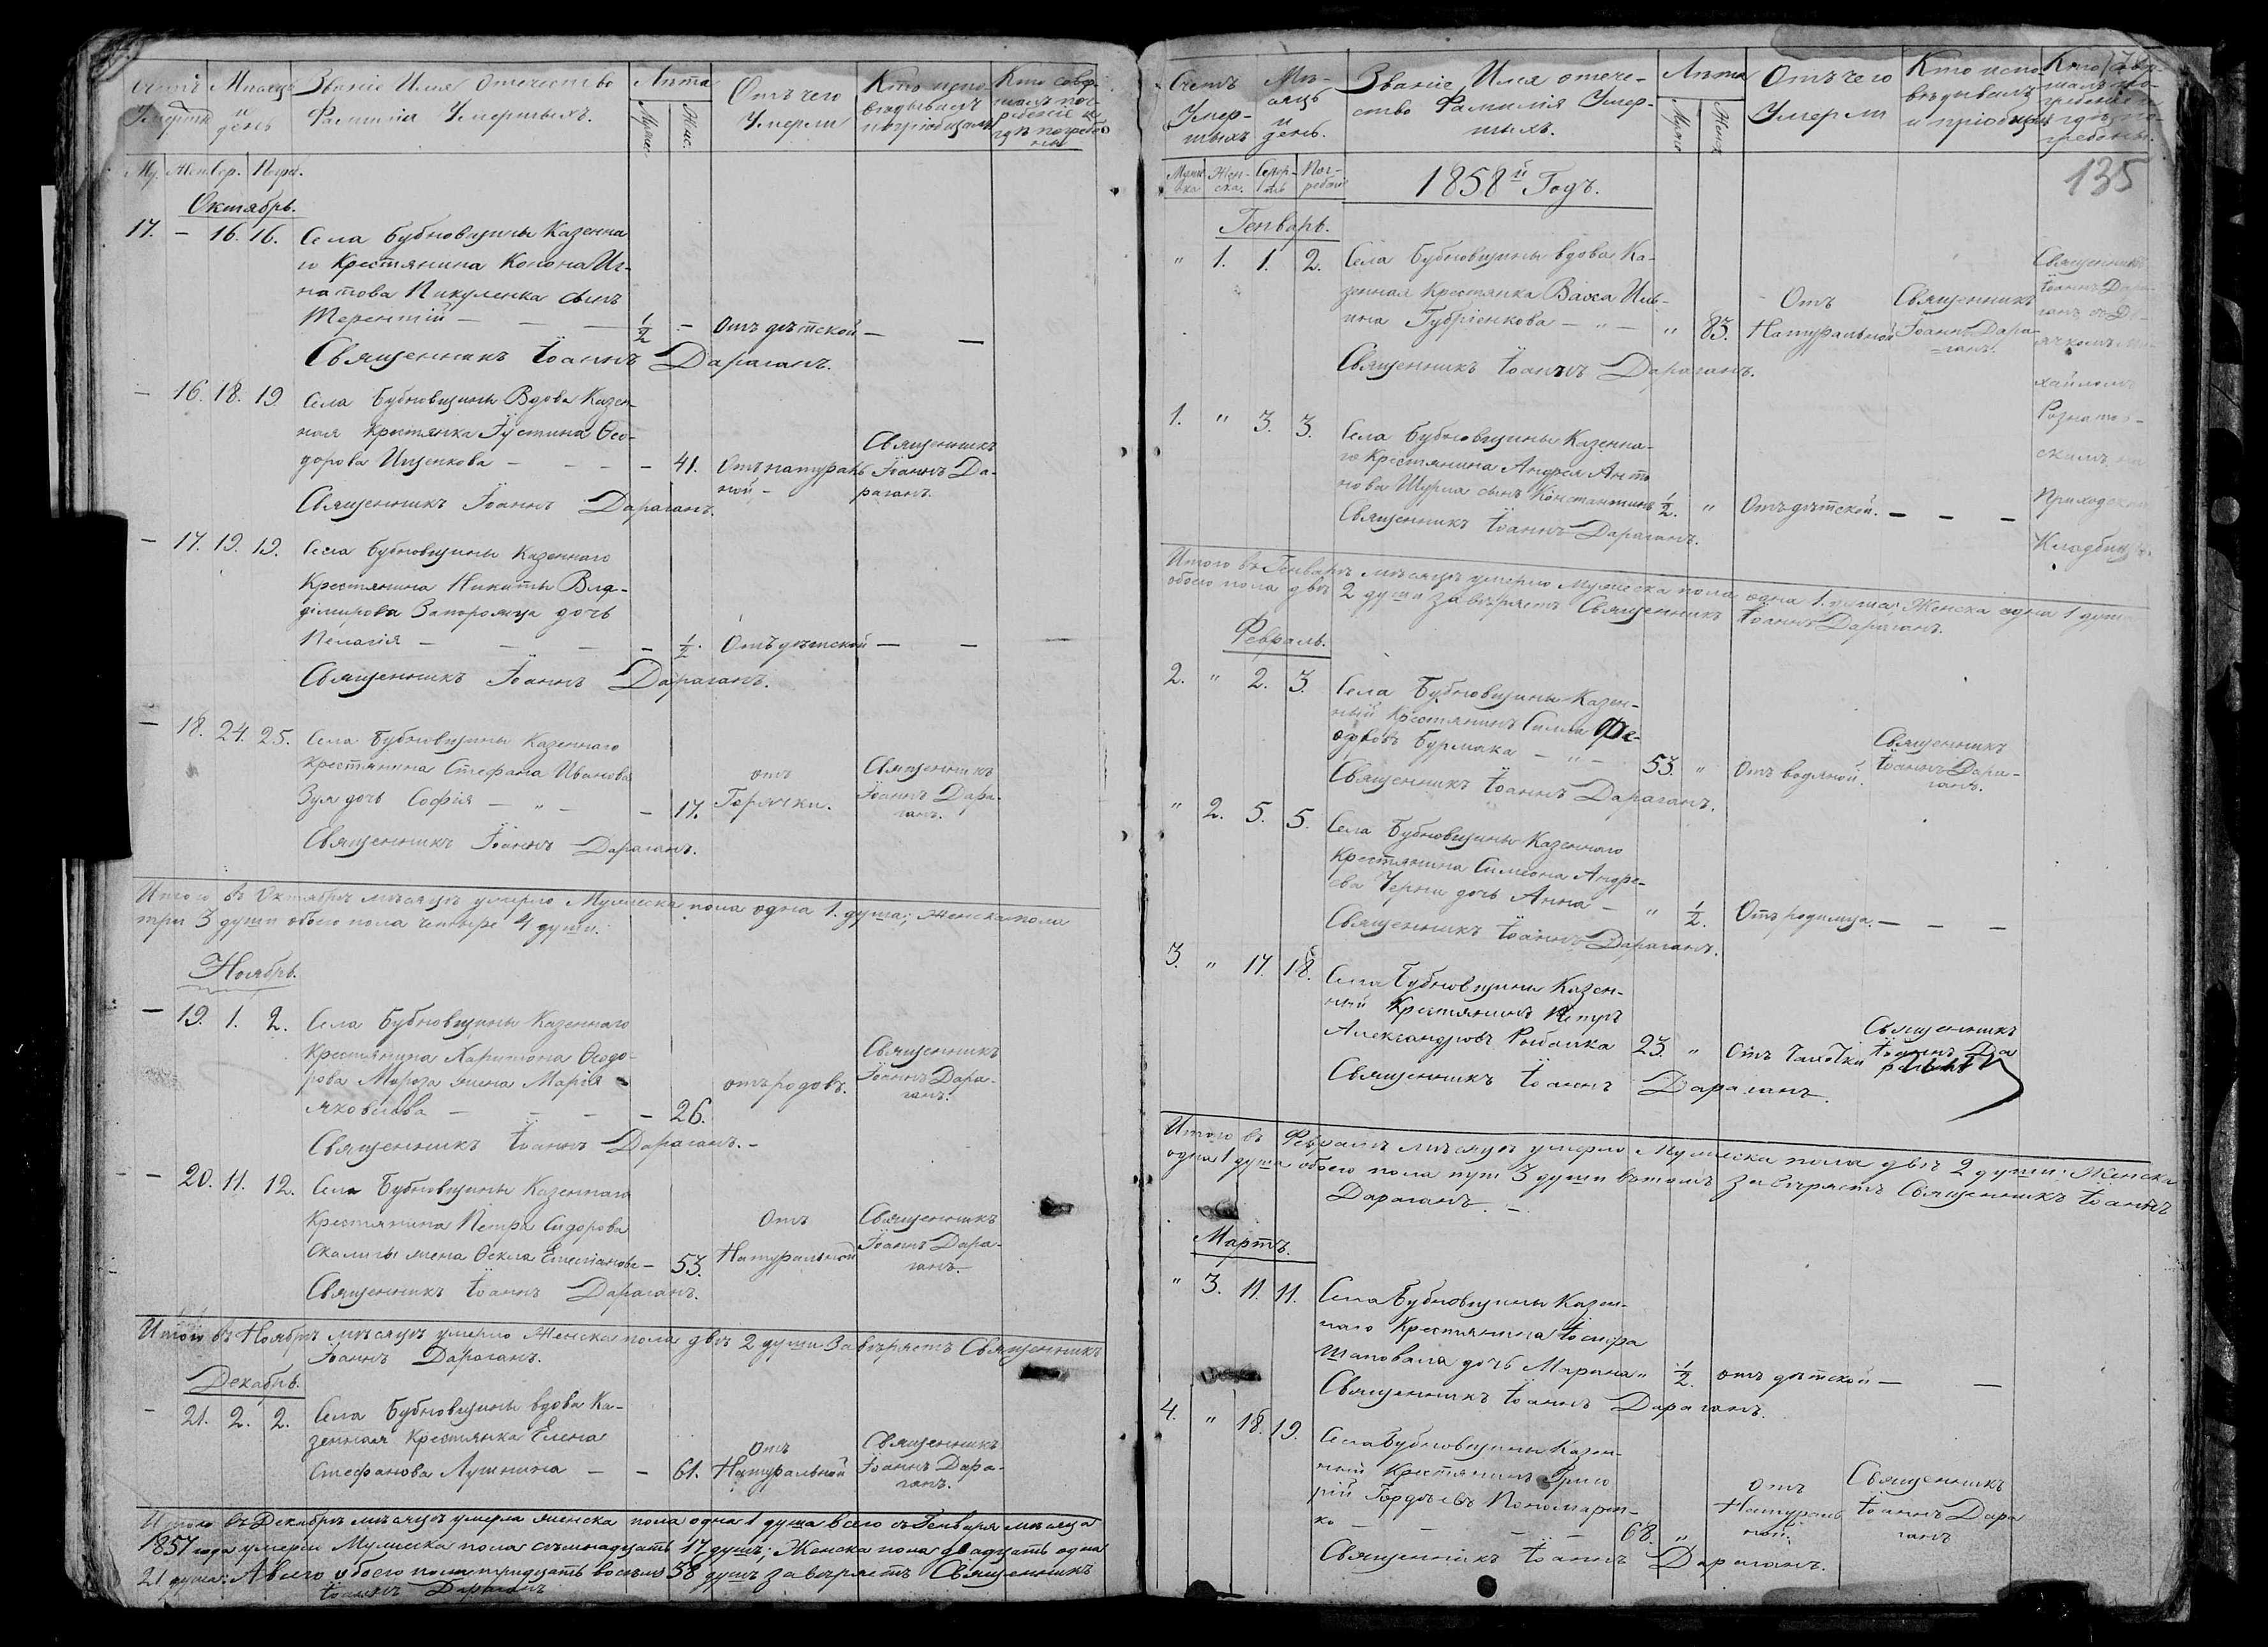 Счетъ Умершихъ
Мѣсяцъ и день
Званіе Имя Отечество
Фамилія Умершихъ.
Лѣта
Муж.
Жен.
Отъ чего
Умерли
Кто испо-
вѣдывалъ
и пріобщалъ
Кто совер-
шалъ пог-
ребеніе и
гдѣ погребе-
ны
Му. Жен. Смер. Погр.
Октябрь.
17. – 16. 16. Села Бубновщины Казенна
го Крестянина Конона Иг-
натова Пикуленка сынъ
Терентій – – – ½ – Отъ дѣтской – –
Священникъ Іоаннъ Дараганъ.
– 16. 18. 19 Села Бубновщины Вдова Казен-
ная Крестянка Іустина Ѳео-
дорова Ищенкова – – – – 41. Отъ натураль
ной –
Священникъ
Іоаннъ Да-
раганъ.
Священникъ Іоаннъ Дараганъ.
– 17. 19. 19. Села Бубновщины Казеннаго
Крестянина Никиты Вла-
димірова Запорожца дочь
Пелагія – – – – ½. Отъ дѣтской – –
Священникъ Іоаннъ Дараганъ.
– 18. 24. 25. Села Бубновщины Казеннаго
Крестянина Стефана Иванова
Зуя дочь Софія – " – – 17.
отъ
Горячки.
Священникъ
Іоаннъ Дара-
ганъ.
Священникъ Іоаннъ Дараганъ.
Итого въ Октябрѣ мѣсяцѣ умерло Мужеска пола одна 1. душа; женска пола
три 3 души обоего пола четыре 4 души.
Ноябрь.
– 19. 1. 2. Села Бубновщины Казеннаго
Крестянина Харитона Ѳеодо-
рова Мороза жена Марія
Яковлева – – – – 26.
отъ родовъ.
Священникъ
Іоаннъ Дара-
ганъ.
Священникъ Іоаннъ Дараганъ. –
– 20. 11. 12. Села Бубновщины Казеннаго
Крестянина Петра Сидорова
жена Ѳекла – 53.
Отъ
Натуральной
Священникъ
Іоаннъ Дара-
ганъ.
Священникъ Іоаннъ Дараганъ.
Итого въ Ноябрѣ мѣсяцѣ умерло Женска пола двѣ 2 души Завѣряетъ Священникъ
Іоаннъ Дараганъ.
Декабрь.
– 21. 2. 2. Села Бубновщины вдова Ка-
зенная Крестянка Елена
Стефанова – – 61.
Отъ
Натуральной
Священникъ
Іоаннъ Дара-
ганъ.
Итого въ Декабрѣ мѣсяцѣ умерла женска пола одна 1 душа всего съ Генваря мѣсяца
1857 года умерли Мужеска пола семнадцать 17 душъ; Женска пола двадцать одна
21 душа: А всего обоего пола тридцать восемь 38 душъ завѣряетъ Священникъ
Іоаннъ Дараганъ
Счетъ
Умер-
шихъ
Мѣ-
сяцъ
и
день.
Званіе, Имя отече-
ство Фамилія Умер-
шихъ.
Лѣта
Муж.
Женск
Отъ чего
Умерли
Кто испо-
вѣдывалъ
и пріобщалъ
Кто совер-
шалъ по-
гребеніе и
гдѣ по-
гребены.
135
Муже-
ска
Жен-
ска.
Смер-
ть
Пог-
ребен
1858й Годъ.
Генварь.
" 1. 1. 2. Села Бубновщины вдова Ка-
зенная Крестянка Васса Иль-
ина Губріенкова – " – " 83.
Отъ
Натуральной
Священникъ
Іоаннъ Дара-
ганъ.
Священникъ
Іоаннъ Дара-
ганъ съ Дь-
ячкомъ Ми-
хайломъ
на
Приходскомъ
Кладбищѣ.
Священникъ Іоаннъ Дараганъ.
1. " 3. 3. Села Бубновщины Казенна-
го Крестянина Андрея Анто
нова сынъ Константинъ ½. " Отъ дѣтской. – – –
Священникъ Іоаннъ Дараганъ.
Итого въ Генварѣ мѣсяцѣ умерло Мужеска пола одна 1. душа; Женска одна 1 душ
обоего пола двѣ 2 души завѣряетъ Священникъ Іоаннъ Дараганъ.
Февраль.
2. " 2. 3. Села Бубновщины Казен-
ный Крестянинъ Ѳе-
одоровъ Бурмака – " – 53. " Отъ водяной.
Священникъ
Іоаннъ Дара-
ганъ.
Священникъ Іоаннъ Дараганъ.
" 2. 5. 5. Села Бубновщины Казеннаго
Крестянина Симеона Андре-
ева Черни дочь Анна – " ½. Отъ родимца. – – –
Священникъ Іоаннъ Дараганъ.
3. " 17. 18. Села Бубновщины Казен-
ный Крестянинъ Петръ
Александровъ Рыбалка 23. " Отъ чахотки
Священникъ
Іоаннъ Да
раганъ
Священникъ Іоаннъ Дараганъ.
Итого въ Февралѣ мѣсяцѣ умерло Мужеска пола двѣ 2 души: Женска
одна 1 душа обоего пола 3 души въ томъ завѣряетъ Священникъ Іоаннъ
Дараганъ. –
Мартъ.
" 3. 11. 11. Села Бубновщины Казен-
наго Крестянина Іосифа
Шаповала дочь Марина " ½. отъ дѣтской – –
Священникъ Іоаннъ Дараганъ.
4. " 18. 19. Села Бубновщины Казен-
ный Крестянинъ Григо
рій Гордѣевъ Пономарен-
ко – – – – 68. "
Отъ
Натураль
ной.
Священникъ
Іоаннъ Дара
ганъ
Священникъ Іоаннъ Дараганъ.